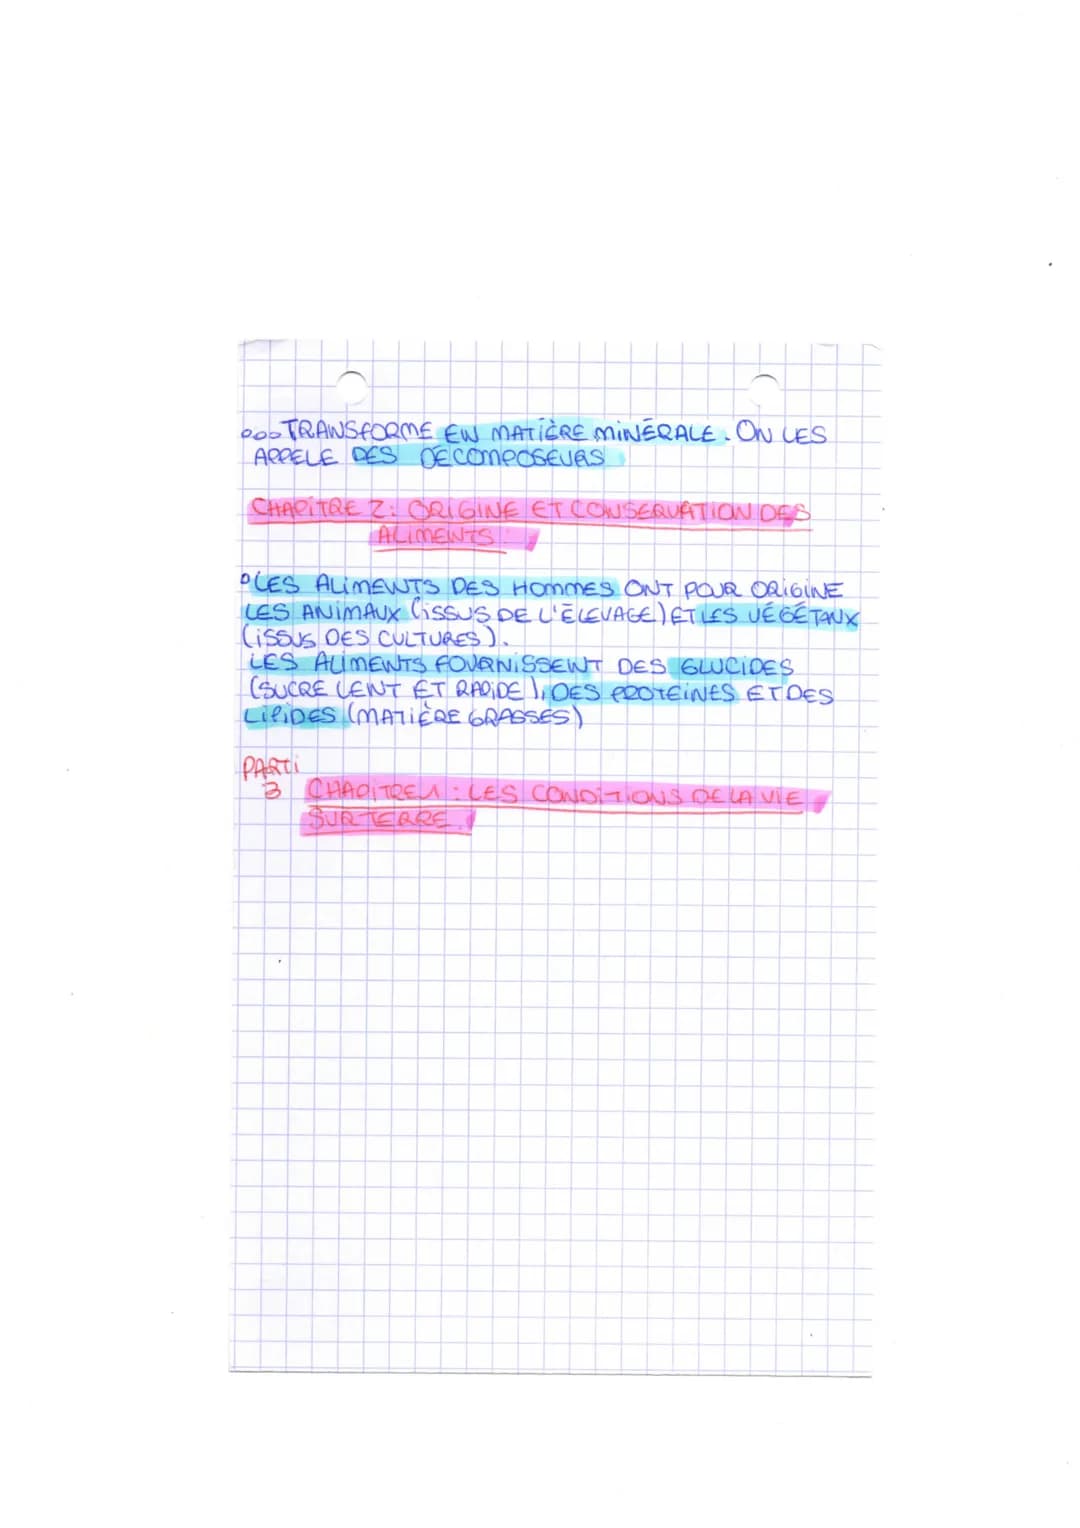 ...TRANSFORME EN MATIÈRE MINÉRALE. ON LES
APPELE DES DÉCOMPOSEURS
CHAPITRE 2: ORIGINE ET CONSERVATION DES
ALIMENTS :
• LES ALIMENTS DES HOMMES ONT POUR ORIGINE
LES ANIMAUX (ISSUS DE L'ÉLEVAGE) ET LES VÉGÉTAUX
(ISSUS DES CULTURES).
LES ALIMENTS FOURNISSENT DES GLUCIDES
(SUCRE LENT ET RAPIDE), DES PROTEÏNES ET DES
LIPIDES (MATIÈRE GRASSES)
PARTI
3 CHAPITRE 1 : LES CONDITIONS DE LA VIE
SUR TERRE.